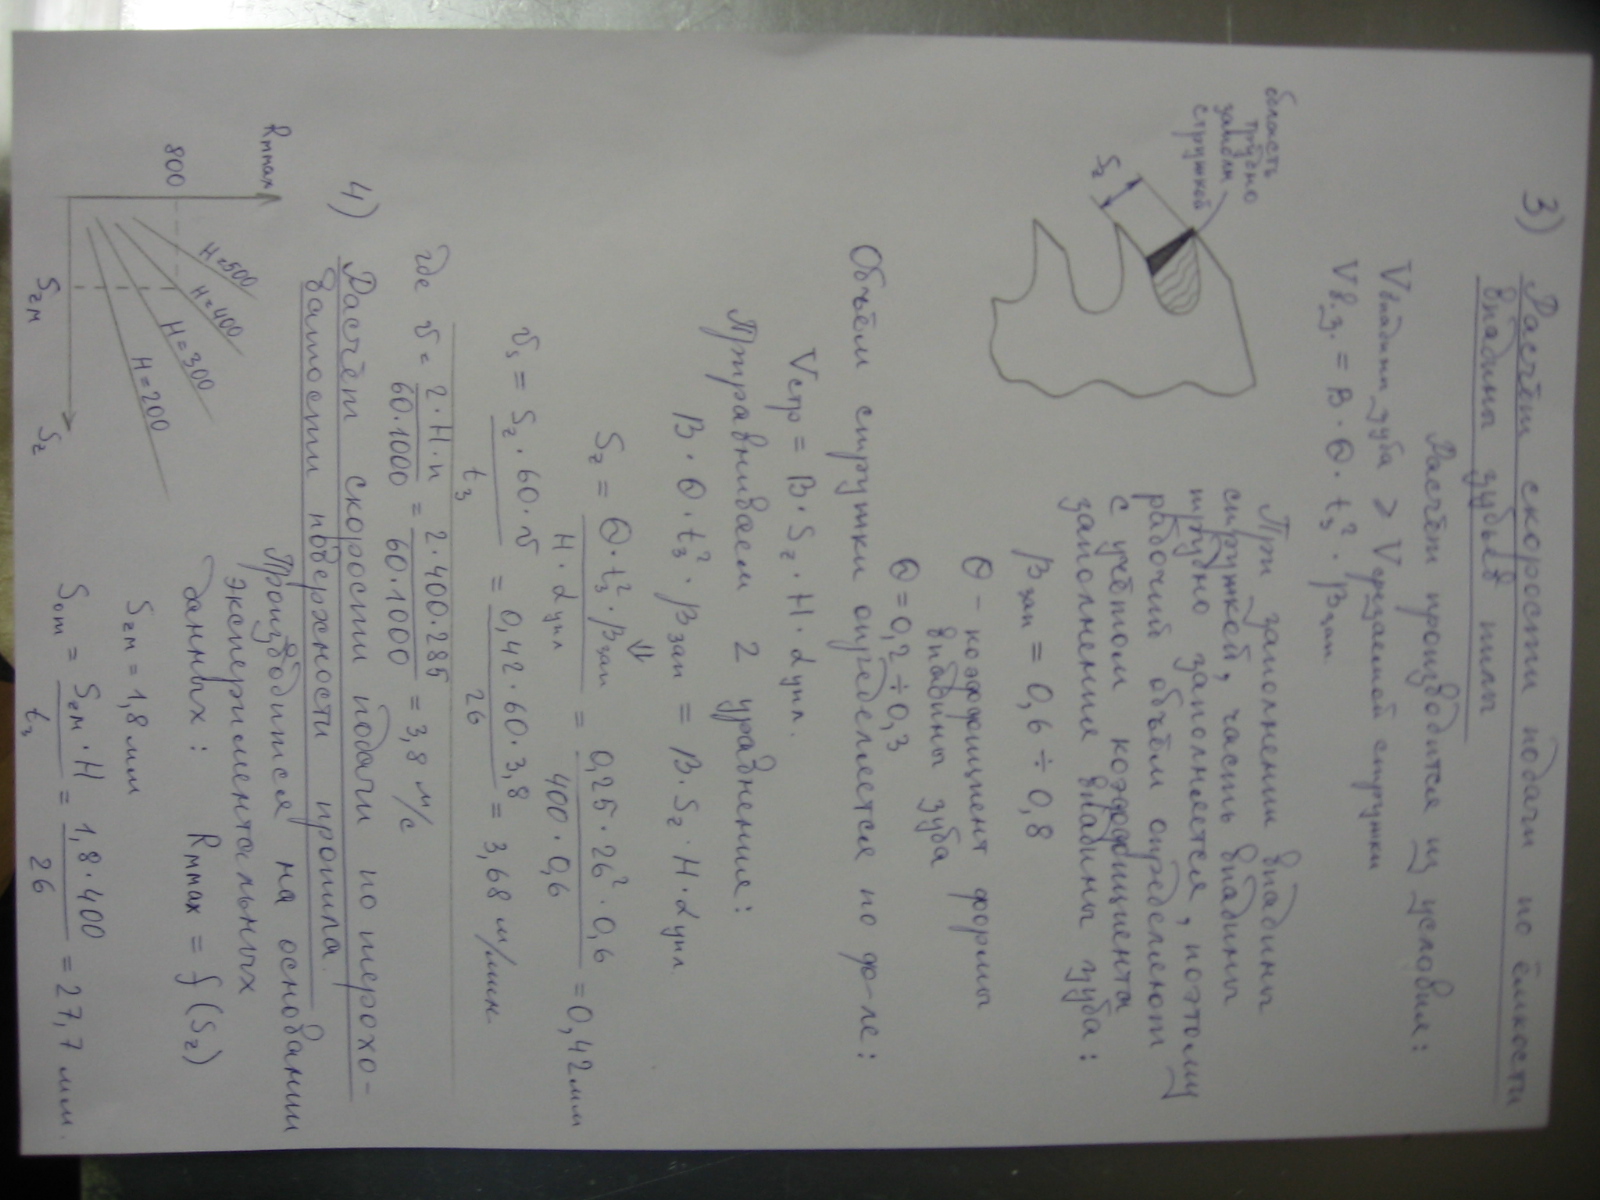 3) Расчёт скорости подачи по ёмкости
впадины зубьев пилы
Расчёт производится из условия:
Vвпадины зуба > Vсрезаемой стружки
Vв.з. = B · Θ · tз² · βзап
область
трудно
запол
стружкой
Sz
При заполнении впадины
стружкой, часть впадины
трудно заполняется, поэтому
рабочий объём определяют
с учётом коэффициента
заполнения впадины зуба:
βзап = 0,6 ÷ 0,8
Θ – коэффициент формы
впадины зуба
Θ = 0,2 ÷ 0,3
Объём стружки определяется по ф-ле:
Vстр = B · Sz · H · αупл.
Приравниваем 2 уравнения:
B · Θ · tз² · βзап = B · Sz · H · αупл.
⇓
Sz = Θ · tз² · βзап / H · αупл = 0,25 · 26² · 0,6 / 400 · 0,6 = 0,42 мм
vs = Sz · 60 · v / tз = 0,42 · 60 · 3,8 / 26 = 3,68 м/мин.
где v = 2 · H · n / 60 · 1000 = 2 · 400 · 285 / 60 · 1000 = 3,8 м/с
4) Расчёт скорости подачи по шерохо-
ватости поверхности пропила.
Производится на основании
экспериментальных
данных: Rmmax = f (Sz)
Rmmax
800
H=500
H=400
H=300
H=200
Szм
Sz
Szм = 1,8 мм
Sот = Szм · H / tз = 1,8 · 400 / 26 = 27,7 мм.